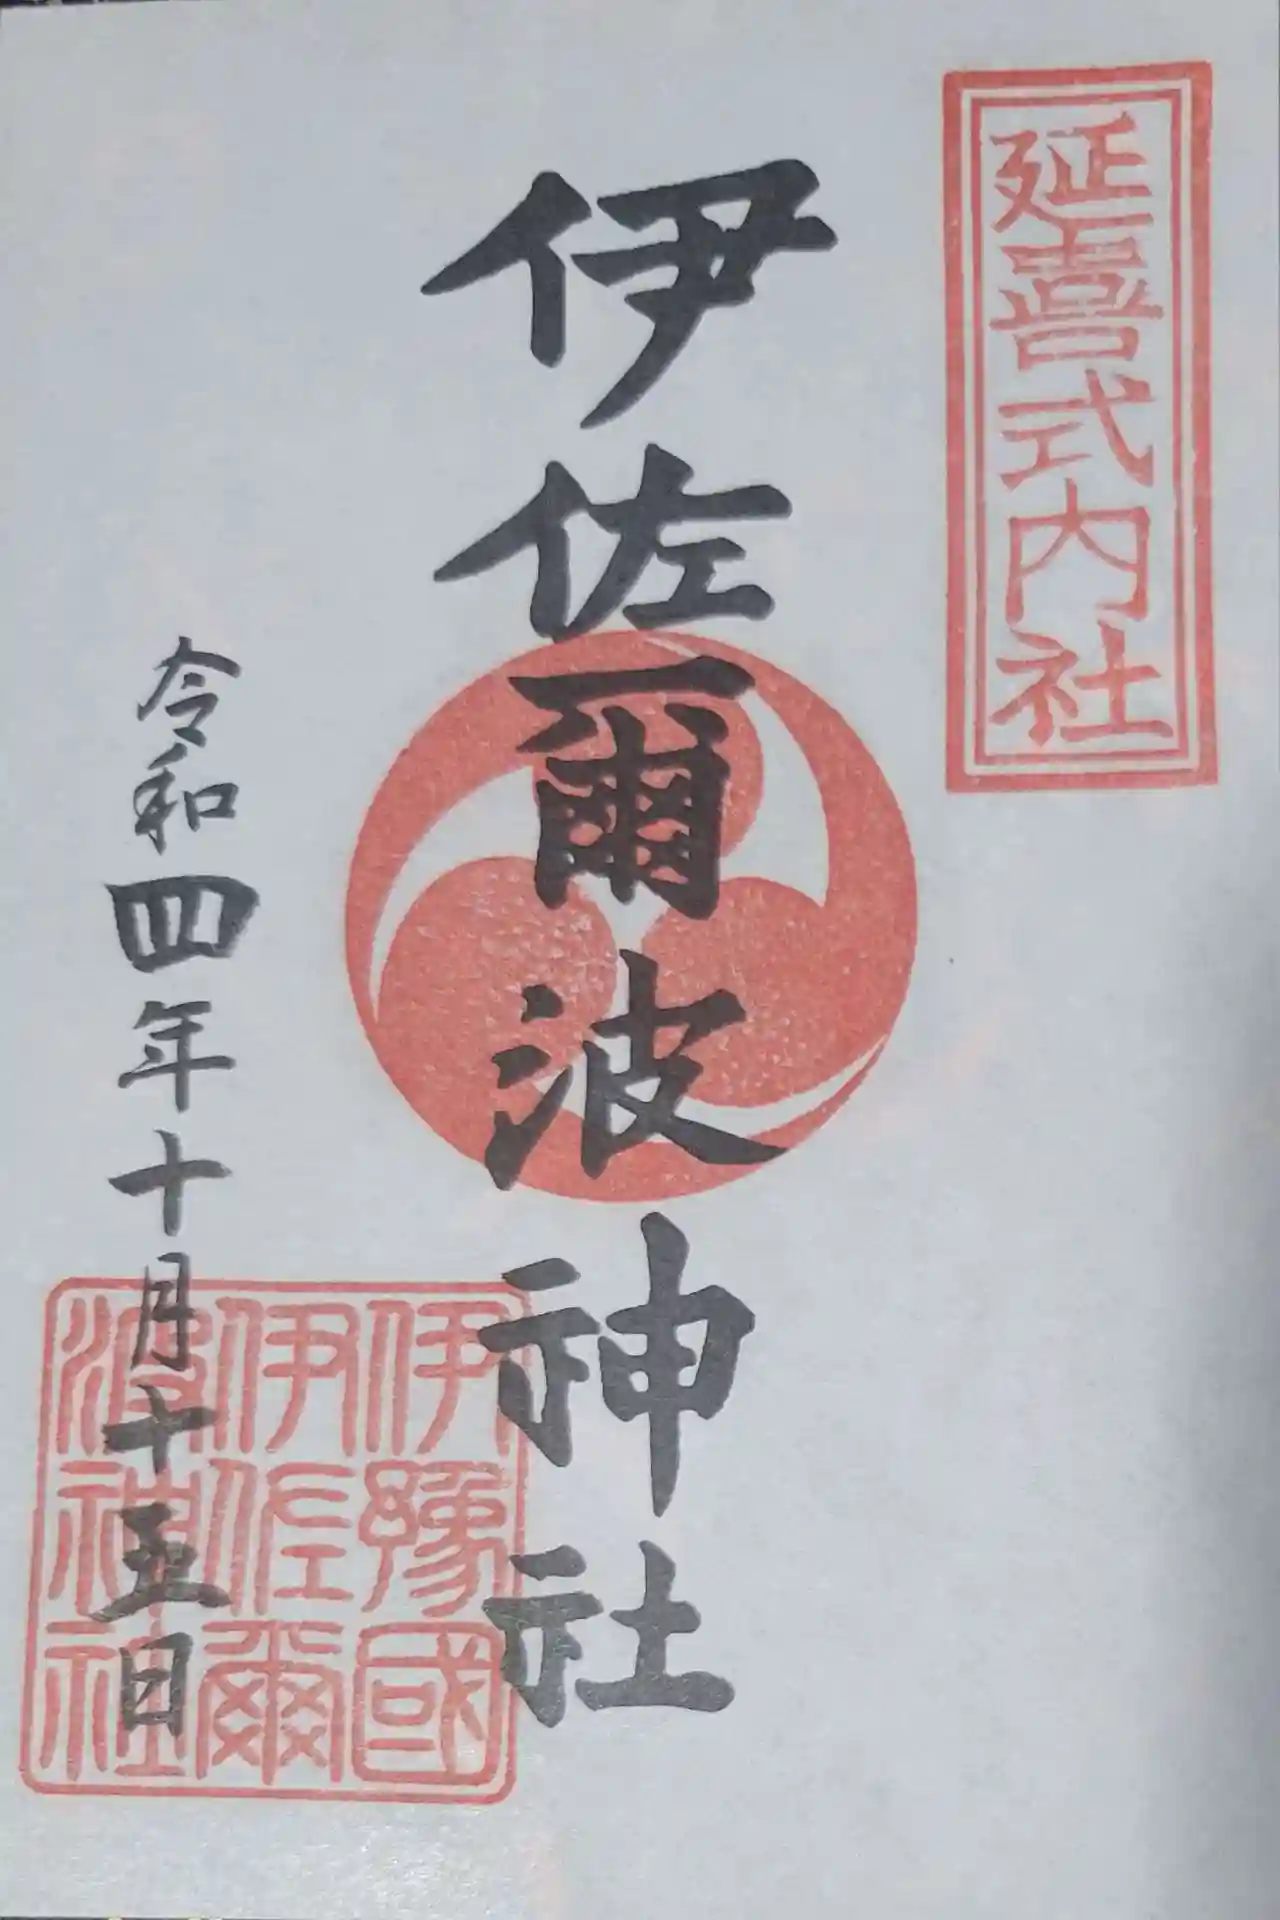 延喜式内社
伊佐爾波神社
伊豫國
伊佐爾
波神社
令和四年十月十五日